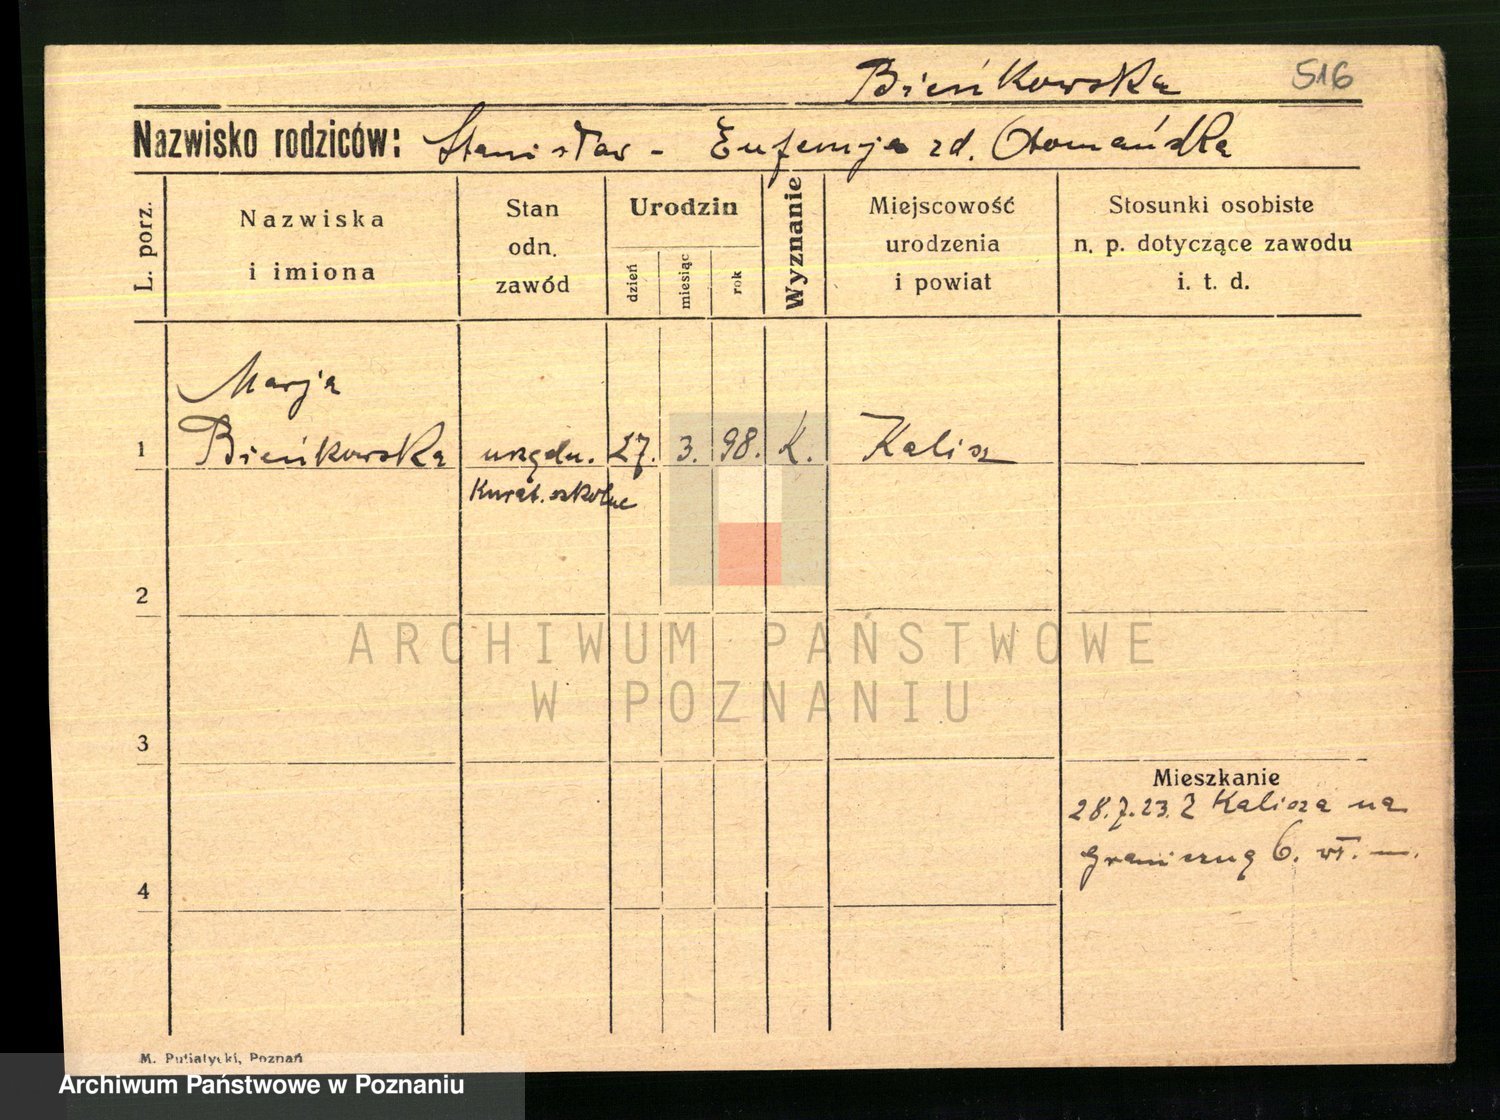 Bieńkowska 516
Nazwisko rodziców: Stanisław - Eufemja zd. Otomańska
L. porz.
Nazwiska
i imiona
Stan
odn.
zawód
Urodzin
dzień
miesiąc
rok
Wyznanie
Miejscowość
urodzenia
i powiat
Stosunki osobiste
n. p. dotyczące zawodu
i. t. d.
Marja
1 Bieńkowska urzędn. 27. 3. 98. K. Kalisz
Kurat. szkolne
2
ARCHIWUM PAŃSTWOWE
W POZNANIU
3
Mieszkanie
28.7.23. Z Kalisza na
Graniczną 6. wł. —.
4
M. Putiatycki, Poznań
Archiwum Państwowe w Poznaniu